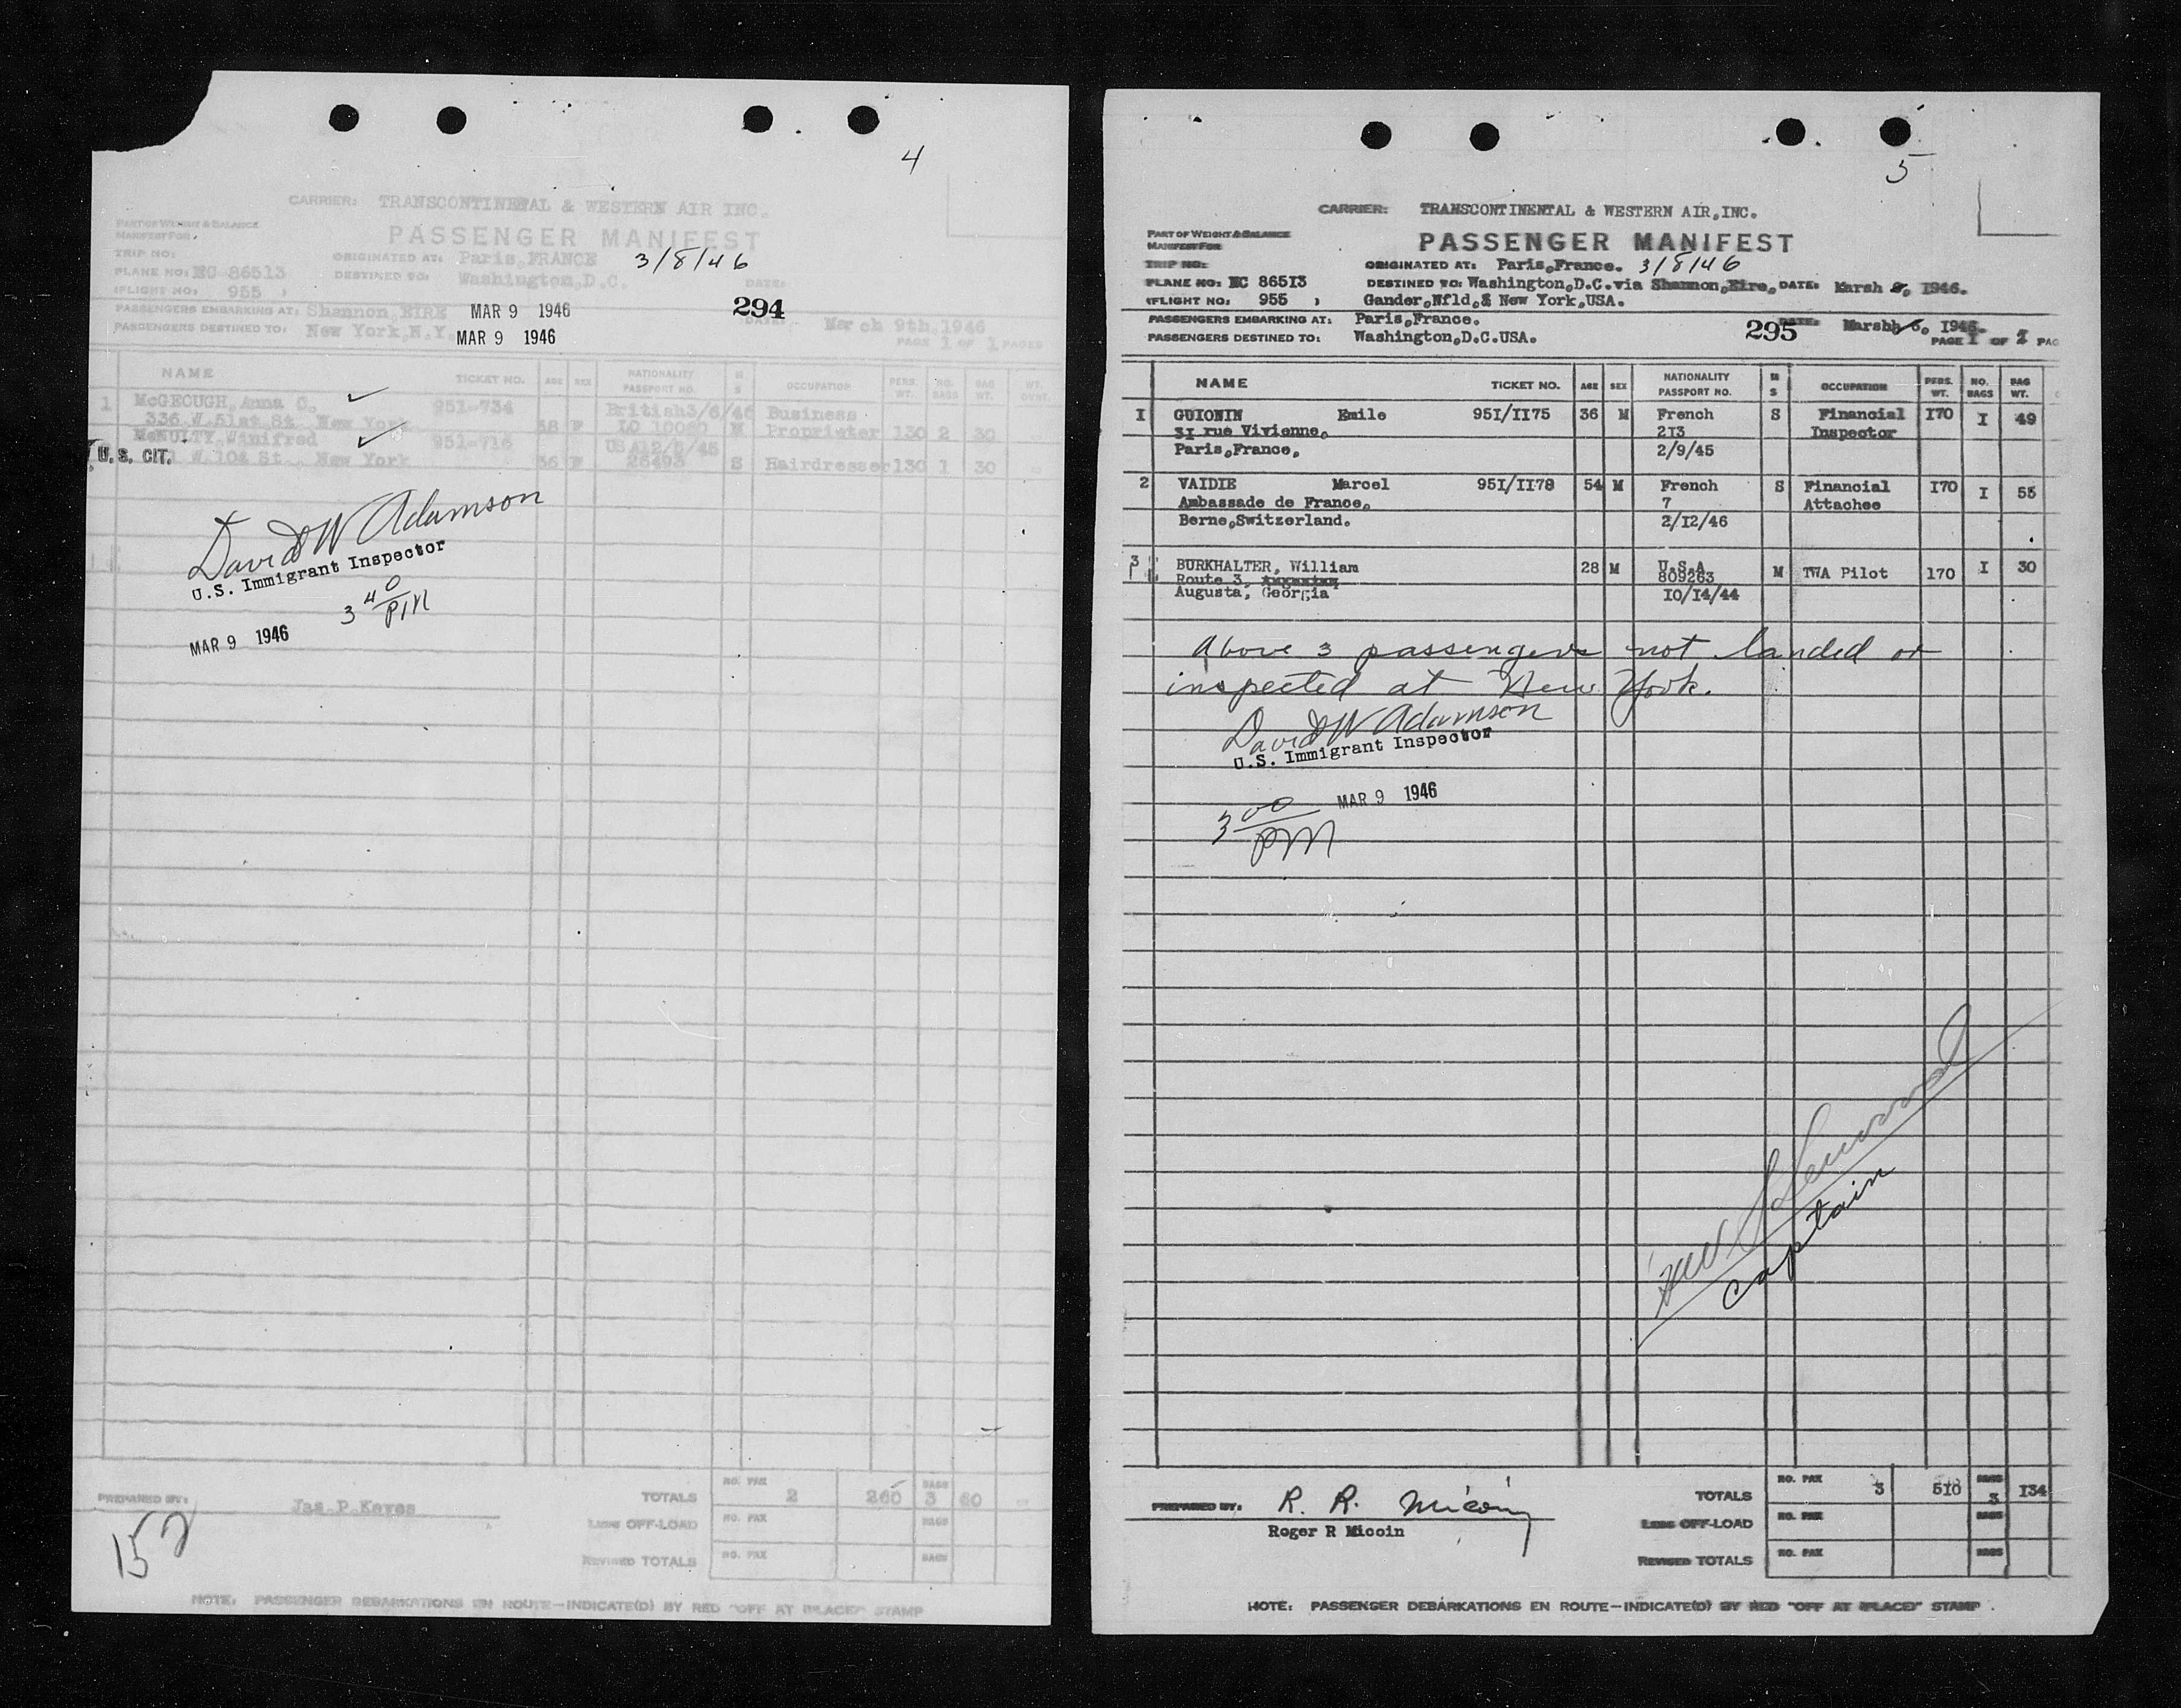 4
CARRIER: TRANSCONTINENTAL & WESTERN AIR INC.
PART OF WEIGHT & BALANCE
MANIFEST FOR
PASSENGER MANIFEST
TRIP NO:
ORIGINATED AT: Paris, FRANCE 3/8/46
PLANE NO: NC 86513
DESTINED TO: Washington, D.C. DATE:
(FLIGHT NO: 955 )
PASSENGERS EMBARKING AT: Shannon EIRE MAR 9 1946 294
PASSENGERS DESTINED TO: New York, N.Y. MAR 9 1946 DATE: March 9th, 1946
PAGE 1 OF 1 PAGES
NAME TICKET NO. AGE SEX NATIONALITY PASSPORT NO. M S OCCUPATION PERS. WT. NO. BAGS BAG WT. WT. OVWT.
1 McGEOUGH, Anna C. 951-734 British 3/6/46 Business
336 W 51st St New York 38 F LO 10080 M Proprietor 130 2 30
McNULTY, Winifred 951-716 USA 12/5/45
U.S. CIT. W 104 St., New York 36 F 26493 S Hairdresser 130 1 30
David W Adamson
U.S. Immigrant Inspector
3 40 PM
MAR 9 1946
PREPARED BY: Jas. P. Keyes
TOTALS NO. PAX 2 260 BAGS 3 60
LESS OFF-LOAD NO. PAX BAGS
REVISED TOTALS NO. PAX BAGS
152
NOTE: PASSENGER DEBARKATIONS EN ROUTE—INDICATE(D) BY RED "OFF AT (PLACE)" STAMP
5
CARRIER: TRANSCONTINENTAL & WESTERN AIR, INC.
PART OF WEIGHT & BALANCE
MANIFEST FOR
PASSENGER MANIFEST
TRIP NO:
ORIGINATED AT: Paris, France. 3/8/46
PLANE NO: NC 86513
DESTINED TO: Washington, D.C. via Shannon, Eire, DATE: Marsh 8, 1946.
(FLIGHT NO. 955 ) Gander, Nfld, & New York, USA.
PASSENGERS EMBARKING AT: Paris, France.
295 DATE: Marsh 1946.
PASSENGERS DESTINED TO: Washington, D.C. USA.
PAGE I OF PAG
NAME TICKET NO. AGE SEX NATIONALITY PASSPORT NO. M S OCCUPATION PERS. WT. NO. BAGS BAG WT.
I GUIONIN Emile 95I/II75 36 M French S Financial I70 I 49
3I rue Vivienne, 2I3 Inspector
Paris, France, 2/9/45
2 VAIDIE Marcel 95I/II78 54 M French S Financial I70 I 55
Ambassade de France, 7 Attachee
Berne, Switzerland. 2/12/46
3 BURKHALTER, William 28 M U.S.A M TWA Pilot 170 I 30
Route 3, 809263
Augusta, Georgia IO/I4/44
Above 3 passengers not landed or
inspected at New York.
David W Adamson
U.S. Immigrant Inspector
MAR 9 1946
3 00 PM
Captain
PREPARED BY: R. R. Micoin
Roger R Micoin
TOTALS NO. PAX 3 510 BAGS 3 134
LESS OFF-LOAD NO. PAX BAGS
REVISED TOTALS NO. PAX BAGS
NOTE: PASSENGER DEBARKATIONS EN ROUTE—INDICATE(D) BY RED "OFF AT (PLACE)" STAMP